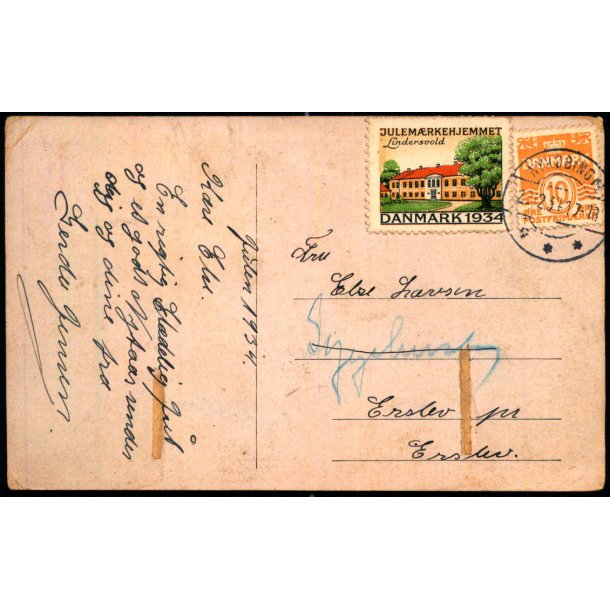 Julen 1934.
Kære Else.
En rigtig Glædelig Jul
og et godt Nytaar sendes
dig og dine fra
Gerda Jensen.
JULEMÆRKEHJEMMET
Lindersvold
DANMARK 1934
DANMARK
10
ØRE
POSTFRIMÆRKE
Fru
Else Larsen
Erslev pr
Erslev.